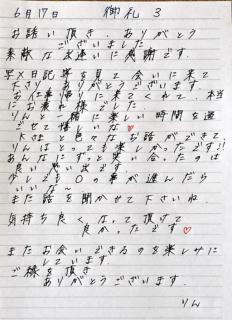 6月17日 御礼 3
お誘い頂き、ありがとう
ございました
素敵なお遣いに感謝です。
写メ日記等を見て会いに来て
下さりありがとうございます。
お仕事 来てくれて、本当
にお疲れ様でした。
りんと一緒に楽しい時間を過
ごせて嬉しいな♡
下さんと色々なお話ができて
りんはとっても楽しかったです!!
あんなにずっと笑い合ったのは
良い思い出です
少しでも〇の事が進んだら
いいな〜
また話を聞かせて下さいね
気持ち良くなって頂けて
良かったです♡
またお会いできるのを楽しみに
しています。
ご縁を頂き
ありがとうございます。
りん